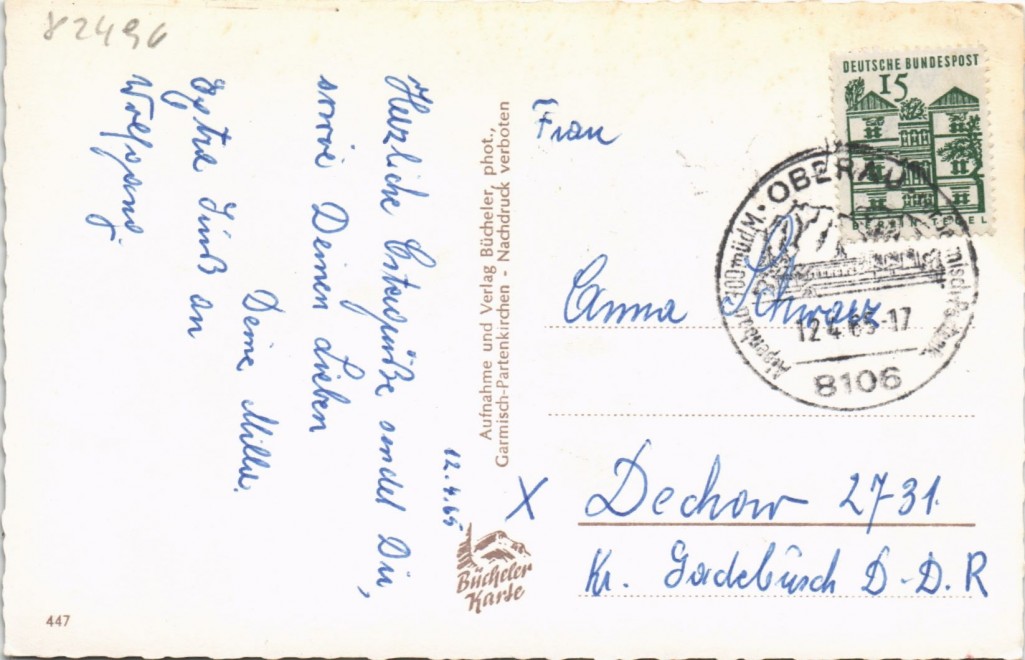 82496
Herzliche Ostergrüße sendet Dir,
sowie Deinen Lieben
Deine Milli.
Extra Gruß an
Wolfgang.
12.4.65
Aufnahme und Verlag Bücheler, phot.,
Garmisch-Partenkirchen - Nachdruck verboten
Bücheler
Karte
447
DEUTSCHE BUNDESPOST
15
BERLIN-TEGEL
OBERAU
12.4.65-17
8106
Frau
Anna Schwarz
X Dechow 2731.
Kr. Gadebusch D-D.R